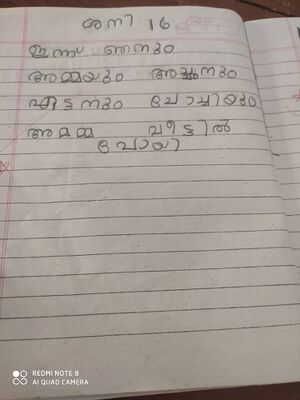 ശനി 16
ഇന്ന് ഞനും
അമ്മയും അച്ഛനും
ഏട്ടനും ചേച്ചിയും
അമമ്മ വീട്ടിൽ
പോയി
REDMI NOTE 8
AI QUAD CAMERA